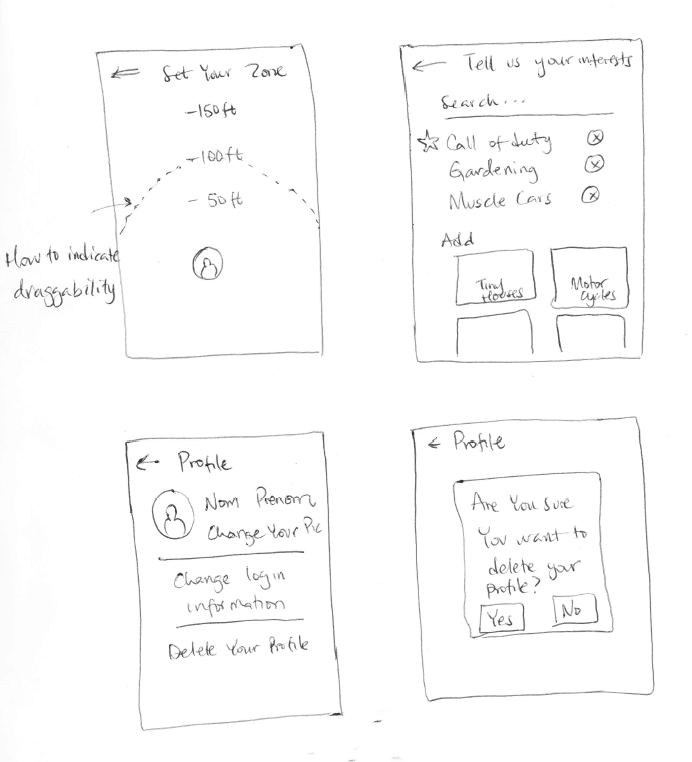 ← Set Your Zone
-150ft
-100ft
- 50ft
How to indicate
draggability
← Tell us your interests
Search...
☆ Call of duty ⓧ
Gardening ⓧ
Muscle Cars ⓧ
Add
Tiny
Houses
Motor
Cycles
← Profile
Nom Prenom
Change Your Pic
Change login
information
Delete Your Profile
← Profile
Are You sure
You want to
delete your
profile?
Yes
No